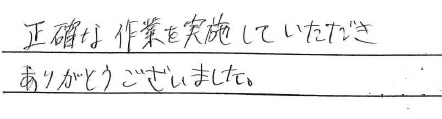 正確な作業を実施していただき
ありがとうございました。